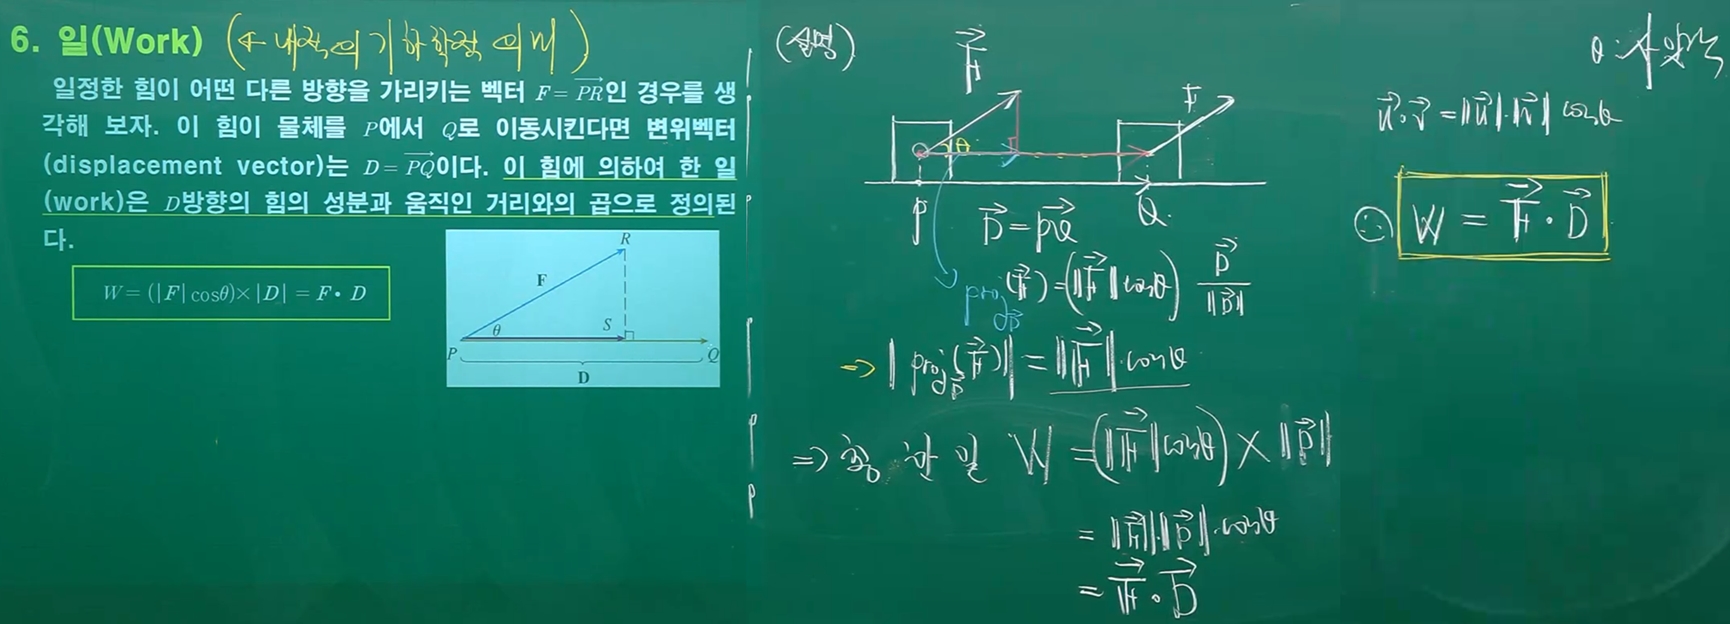 6. 일(Work) (← 내적의 기하학적 의미)
일정한 힘이 어떤 다른 방향을 가리키는 벡터 F = \overrightarrow{PR}인 경우를 생
각해 보자. 이 힘이 물체를 P에서 Q로 이동시킨다면 변위벡터
(displacement vector)는 D = \overrightarrow{PQ}이다. 이 힘에 의하여 한 일
(work)은 D방향의 힘의 성분과 움직인 거리와의 곱으로 정의된
다.
W = (|F| cosθ) × |D| = F • D
R
F
θ
S
P
Q
D
(설명)
\vec{F}
F
θ
P
Q
\vec{D} = \overrightarrow{PQ}
proj_{\vec{D}}(\vec{F}) = (‖\vec{F}‖ cosθ) \frac{\vec{D}}{‖\vec{D}‖}
⇒ ‖proj_{\vec{D}}(\vec{F})‖ = ‖\vec{F}‖ · cosθ
⇒ 한 일 W = (‖\vec{F}‖ cosθ) × ‖\vec{D}‖
= ‖\vec{F}‖ ‖\vec{D}‖ · cosθ
= \vec{F} · \vec{D}
θ : 사잇각
\vec{u} · \vec{v} = ‖\vec{u}‖ · ‖\vec{v}‖ cosθ
∴ W = \vec{F} · \vec{D}